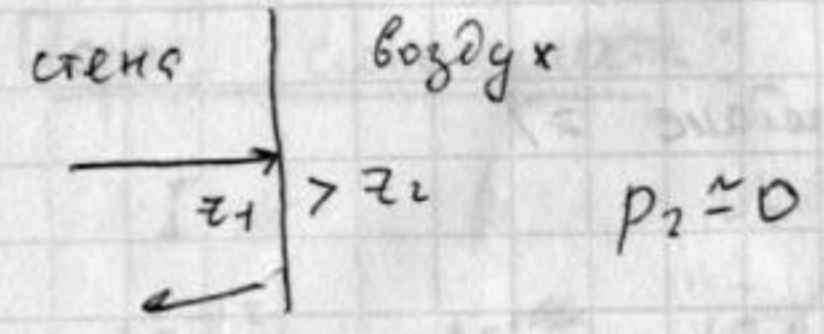 стена воздух
z₁ > z₂ p₂ ≃ 0